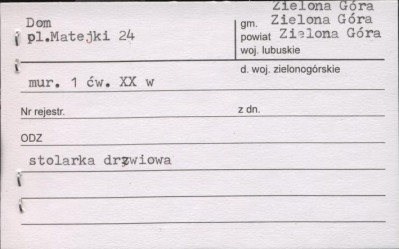 Zielona Góra
Dom
gm. Zielona Góra
pl.Matejki 24
powiat Zielona Góra
woj. lubuskie
d. woj. zielonogórskie
mur. 1 ćw. XX w
Nr rejestr.
z dn.
ODZ
stolarka drzwiowa